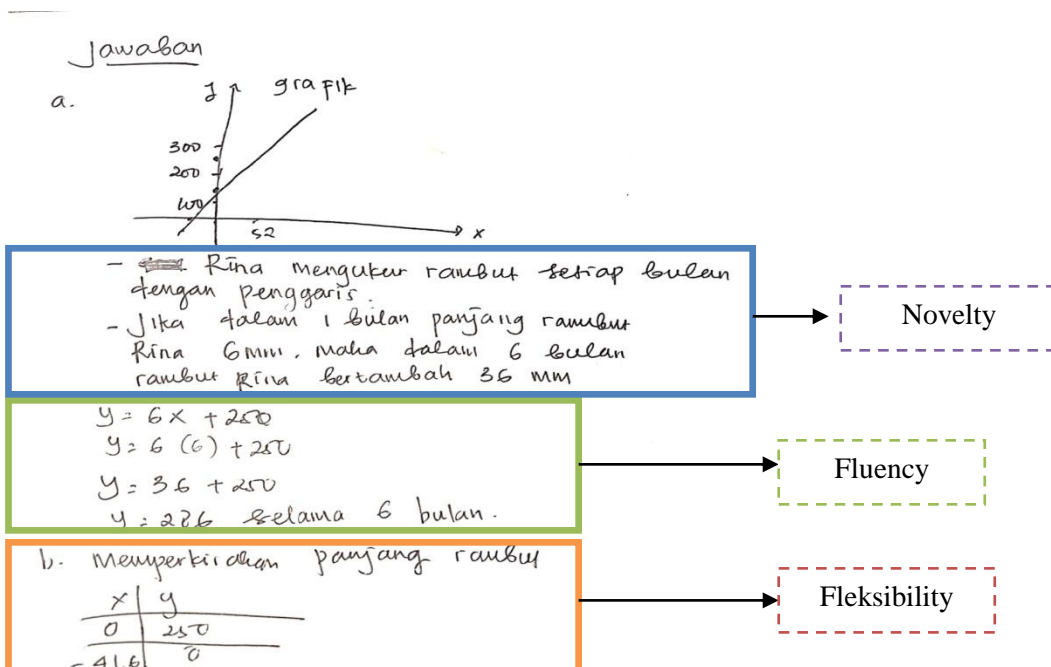 Jawaban
a.
y grafik
300
200
100
52 x
- Rina mengukur rambut setiap bulan
dengan penggaris.
- Jika dalam 1 bulan panjang rambut
Rina 6mm, maka dalam 6 bulan
rambut Rina bertambah 36 mm
Novelty
y = 6x + 250
y = 6 (6) + 250
y = 36 + 250
y = 286 selama 6 bulan.
Fluency
b. Memperkirakan panjang rambut
x y
0 250
-41,6 0
Fleksibility